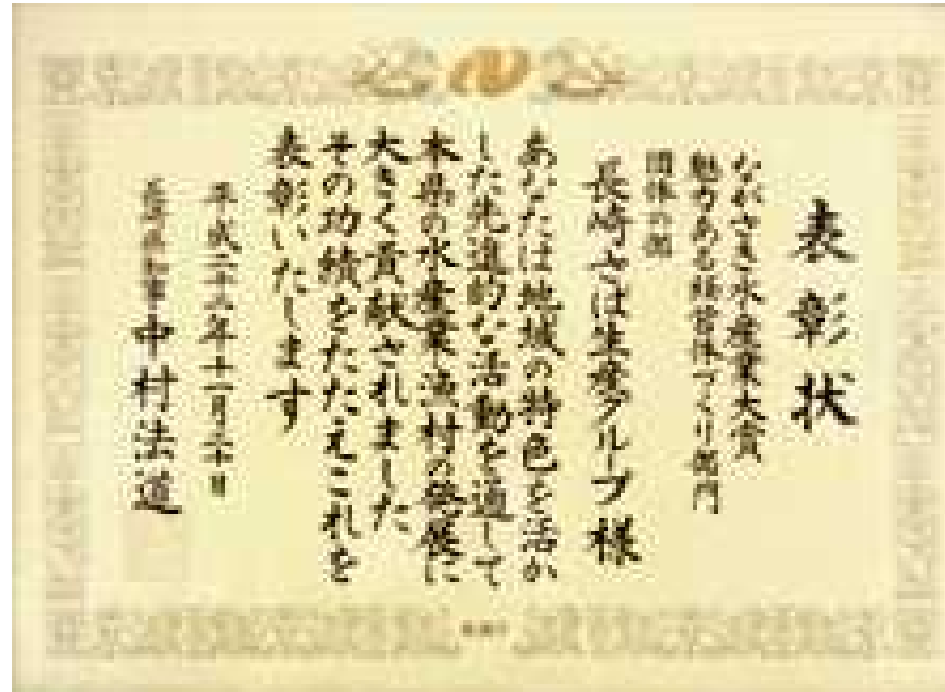 表彰状
ながさき水産業大賞
魅力ある経営体づくり部門
団体の部
長崎さば生産グループ様
あなたは地域の特色を活か
した先進的な活動を通して
本県の水産業漁村の発展に
大きく貢献されました
その功績をたたえこれを
表彰いたします
平成二十二年十一月二十日
長崎県知事 中村法道